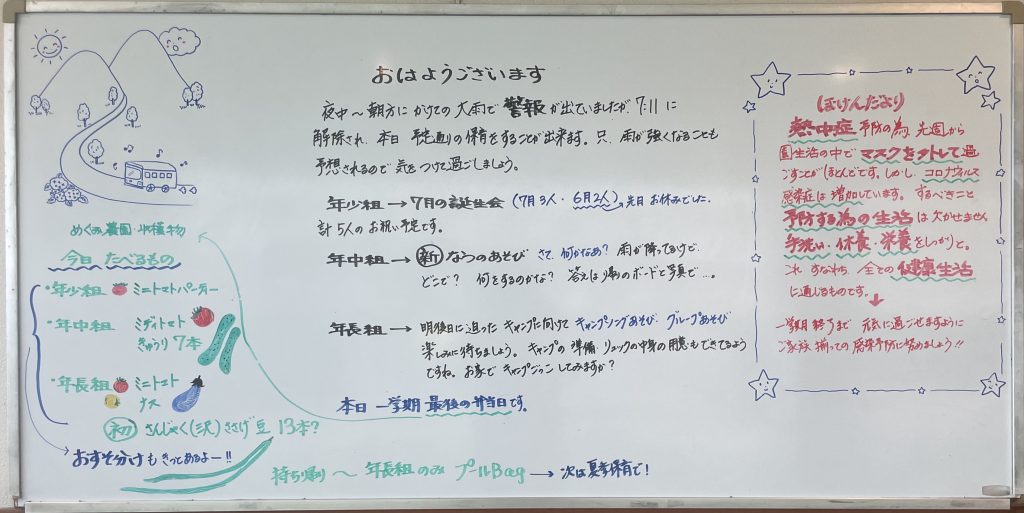 おはようございます
夜中〜朝方にかけての大雨で警報が出ていましたが、7:11に
解除され、本日 予定通りの保育をすることが出来ます。只、雨が強くなることも
予想されるので気をつけて過ごしましょう。
年少組→7月の誕生会(7月3人・6月2人)→先日お休みでした。
計5人のお祝い予定です。
年中組→新 なつのあそび さて、何かなあ? 雨が降ってるけど、
どこで? 何をするのかな? 答えは帰りのボードと写真で…。
年長組→明後日に迫ったキャンプに向けてキャンプソングあそび、グループあそび
楽しみに待ちましょう。キャンプの準備 リュックの中身の用意もできてるよう
ですね。お家でキャンプごっこしてみますか?
本日 一学期 最後の弁当日です。
持ち帰り〜 年長組のみ プールBag→次は夏季保育で!
めぐみ農園・収穫物
今日 たべるもの
・年少組 ミニトマトパーティー
・年中組 ミディトマト
きゅうり 7本
・年長組 ミニトマト
ナス
初 さんじゃく(三尺)ささげ豆 13本?
おすそ分けもきっとあるよー!!
ほけんだより
熱中症 予防の為、先週から
園生活の中でマスクを外して過
ごすことがほとんどです。しかし、コロナウィルス
感染症は増加しています。するべきこと
予防する為の生活は欠かせません
手洗い・休養・栄養をしっかりと。
これ すなわち 全ての健康生活
に通じるものです。
一学期終了まで 元気に過ごせますように
ご家族 揃っての感染予防に努めましょう!!